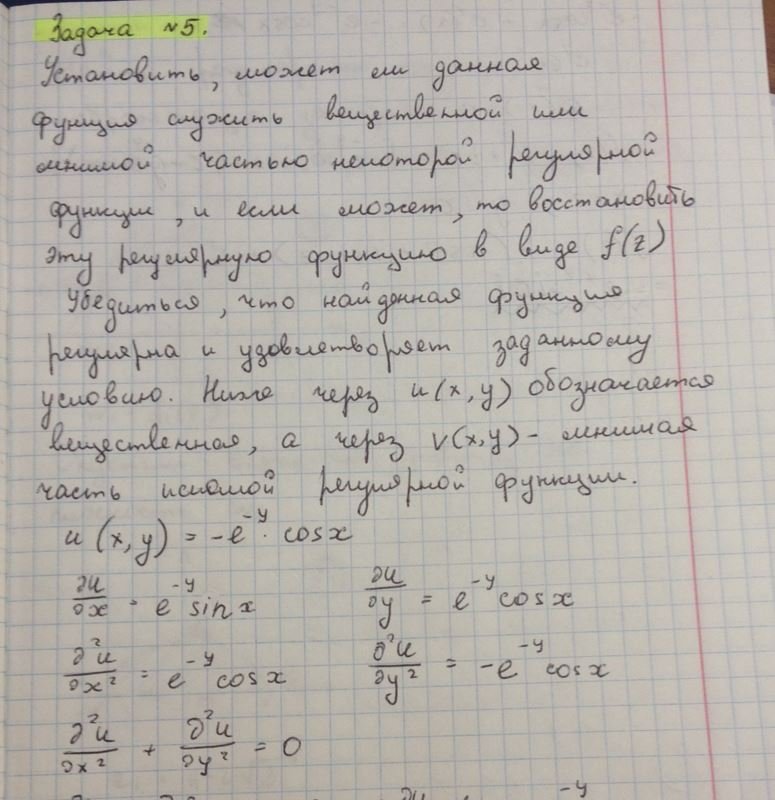 Задача №5.
Установить, может ли данная
функция служить вещественной или
мнимой частью некоторой регулярной
функции, и если может, то восстановить
эту регулярную функцию в виде f(z)
Убедиться, что найденная функция
регулярна и удовлетворяет заданному
условию. Ниже через u(x,y) обозначается
вещественная, а через v(x,y) - мнимая
часть искомой регулярной функции.
u(x,y) = -e^{-y} · cosx
∂u/∂x = e^{-y} sinx ∂u/∂y = e^{-y} cosx
∂²u/∂x² = e^{-y} cosx ∂²u/∂y² = -e^{-y} cosx
∂²u/∂x² + ∂²u/∂y² = 0